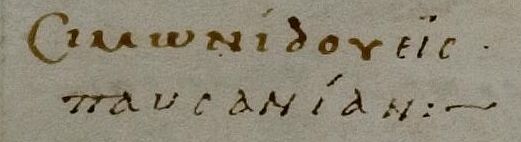 Cιμωνίδου εἰς ·
παυσανίαν :~